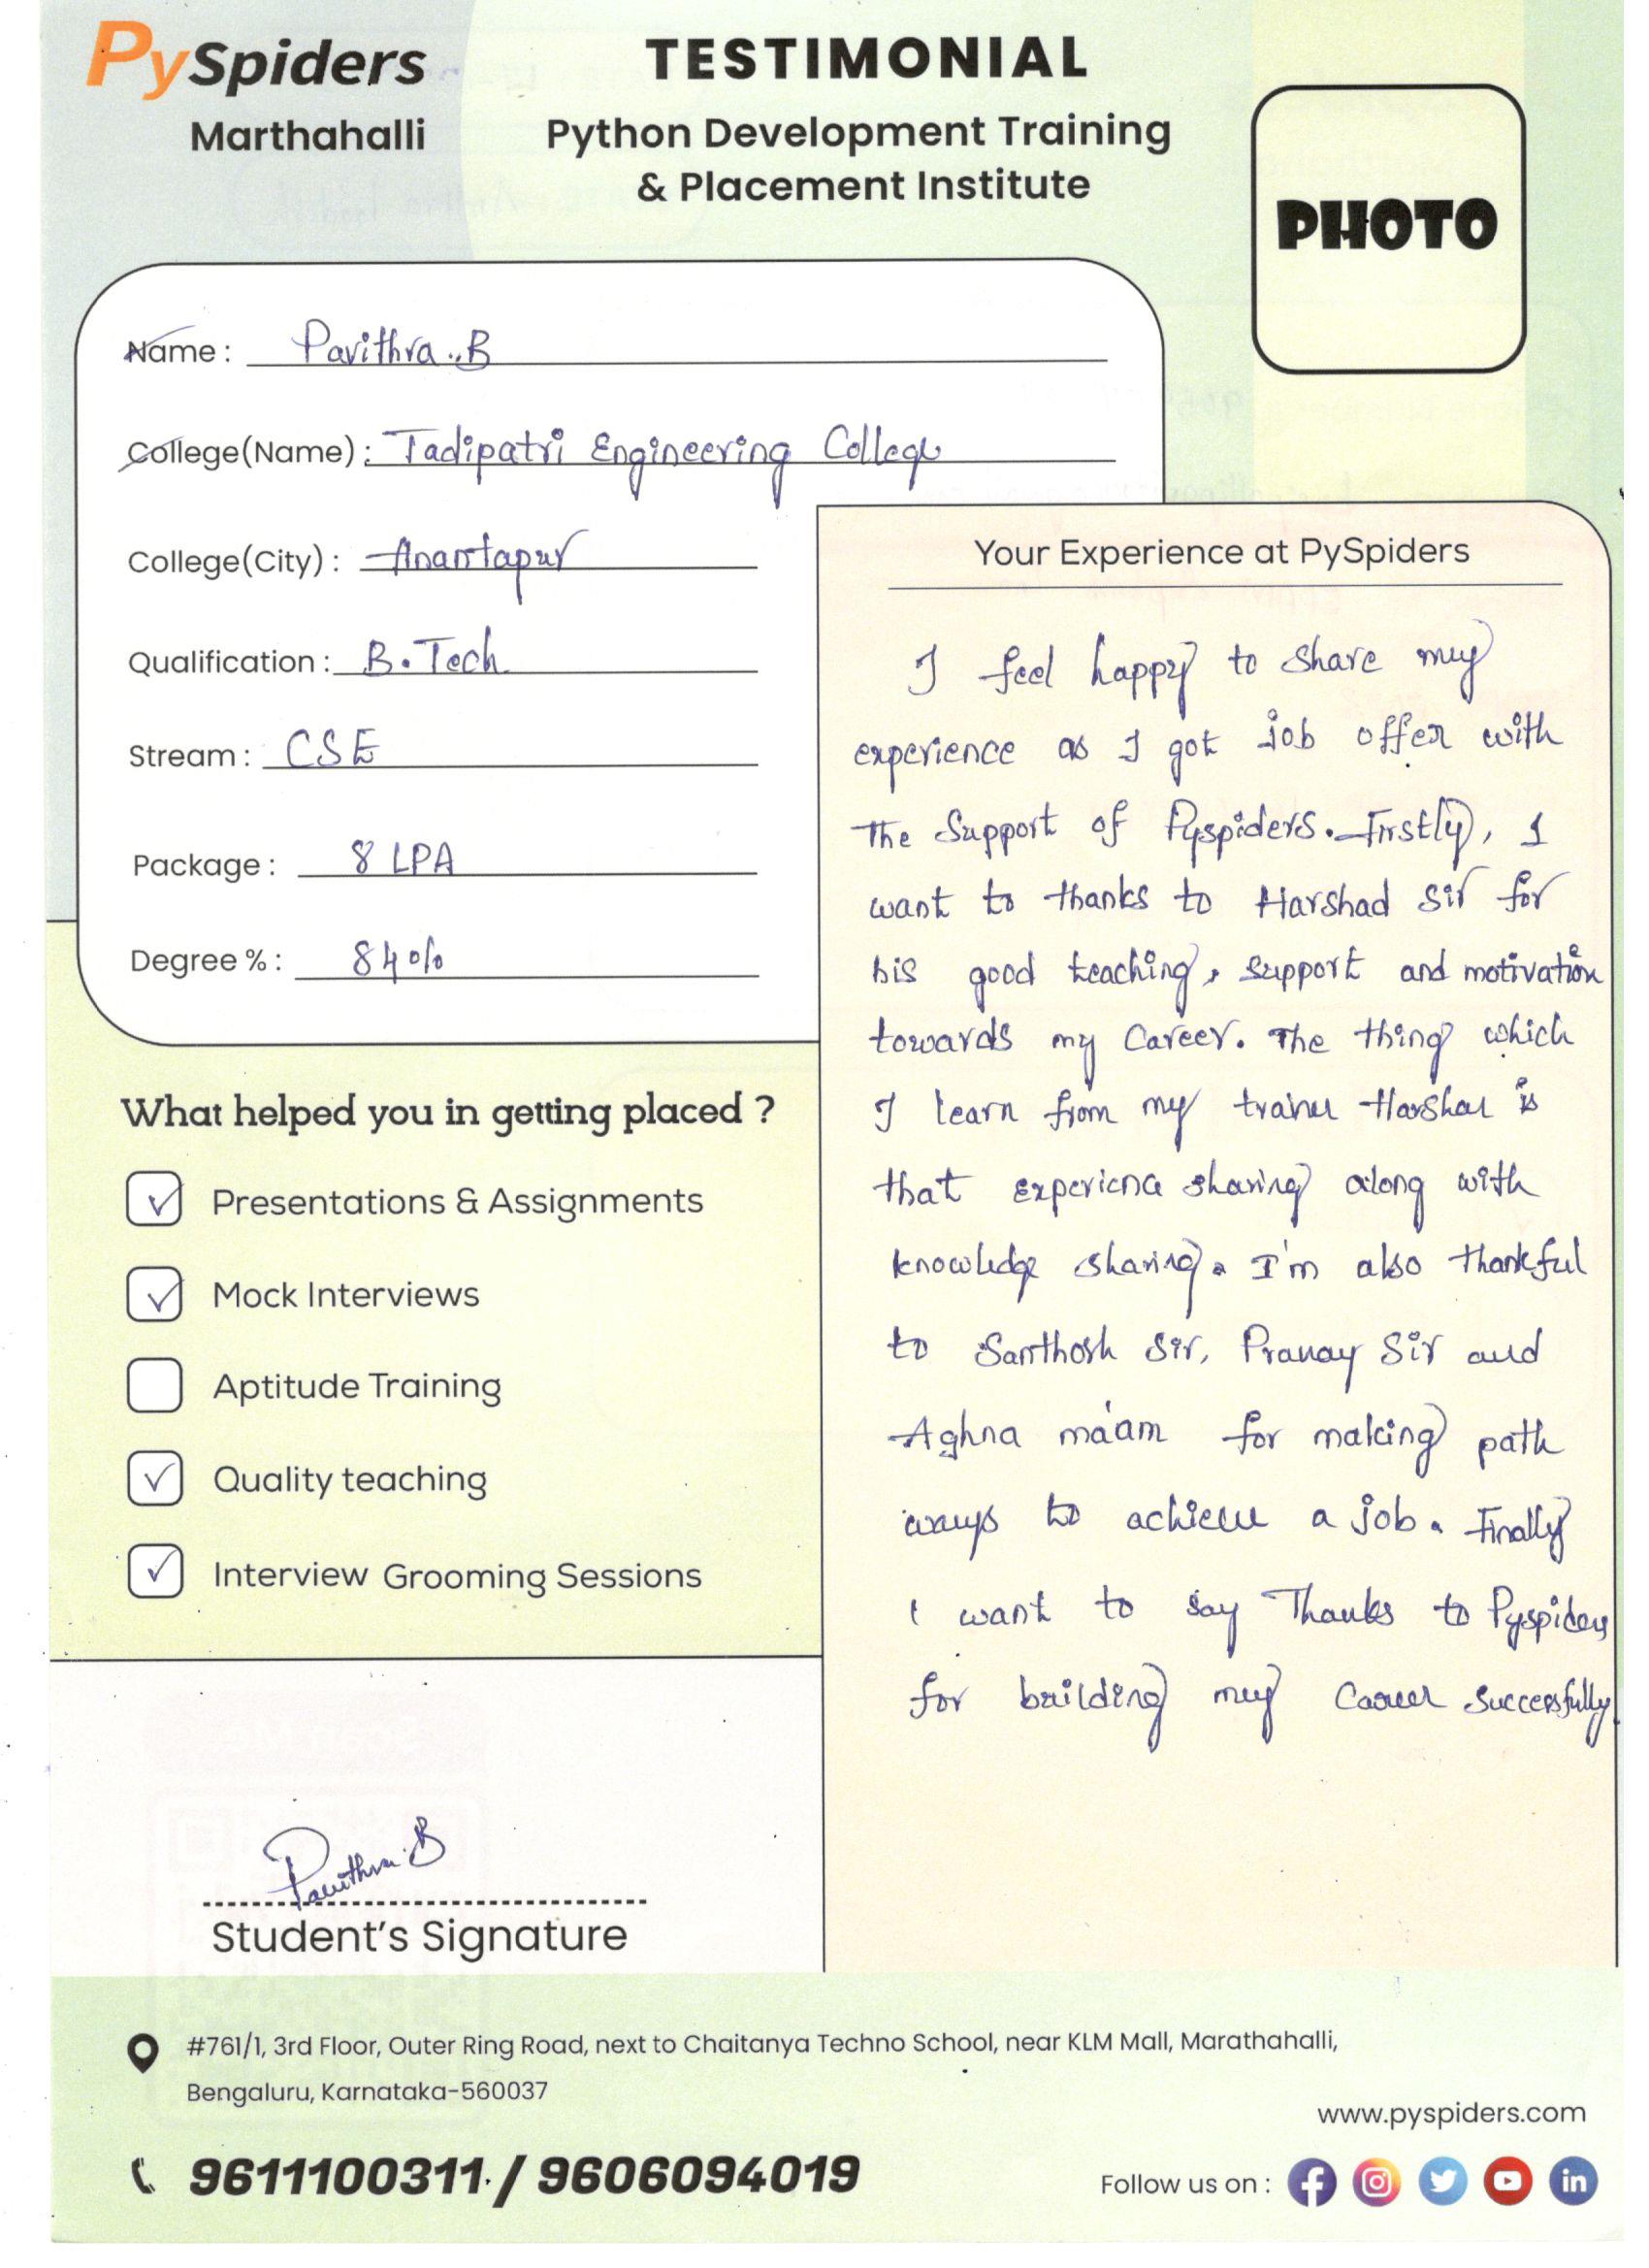 PySpiders
Marthahalli
TESTIMONIAL
Python Development Training
& Placement Institute
PHOTO
Name : Pavithra.B
College(Name) : Tadipatri Engineering College
College(City) : Anantapur
Qualification : B.Tech
Stream : CSE
Package : 8 LPA
Degree % : 84%
What helped you in getting placed ?
Presentations & Assignments
Mock Interviews
Aptitude Training
Quality teaching
Interview Grooming Sessions
Your Experience at PySpiders
I feel happy to share my
experience as I got job offer with
the Support of Pyspiders. Firstly, I
want to thanks to Harshad Sir for
his good teaching, support and motivation
towards my Career. The thing which
I learn from my trainer Harshad is
that experience sharing along with
knowledge sharing. I'm also thankful
to Santhosh Sir, Pranay Sir and
Aghna ma'am for making path
ways to achieve a job. Finally
I want to say Thanks to Pyspiders
for building my Career Successfully
Pavithra.B
Student's Signature
#761/1, 3rd Floor, Outer Ring Road, next to Chaitanya Techno School, near KLM Mall, Marathahalli,
Bengaluru, Karnataka-560037
www.pyspiders.com
9611100311 / 9606094019
Follow us on :